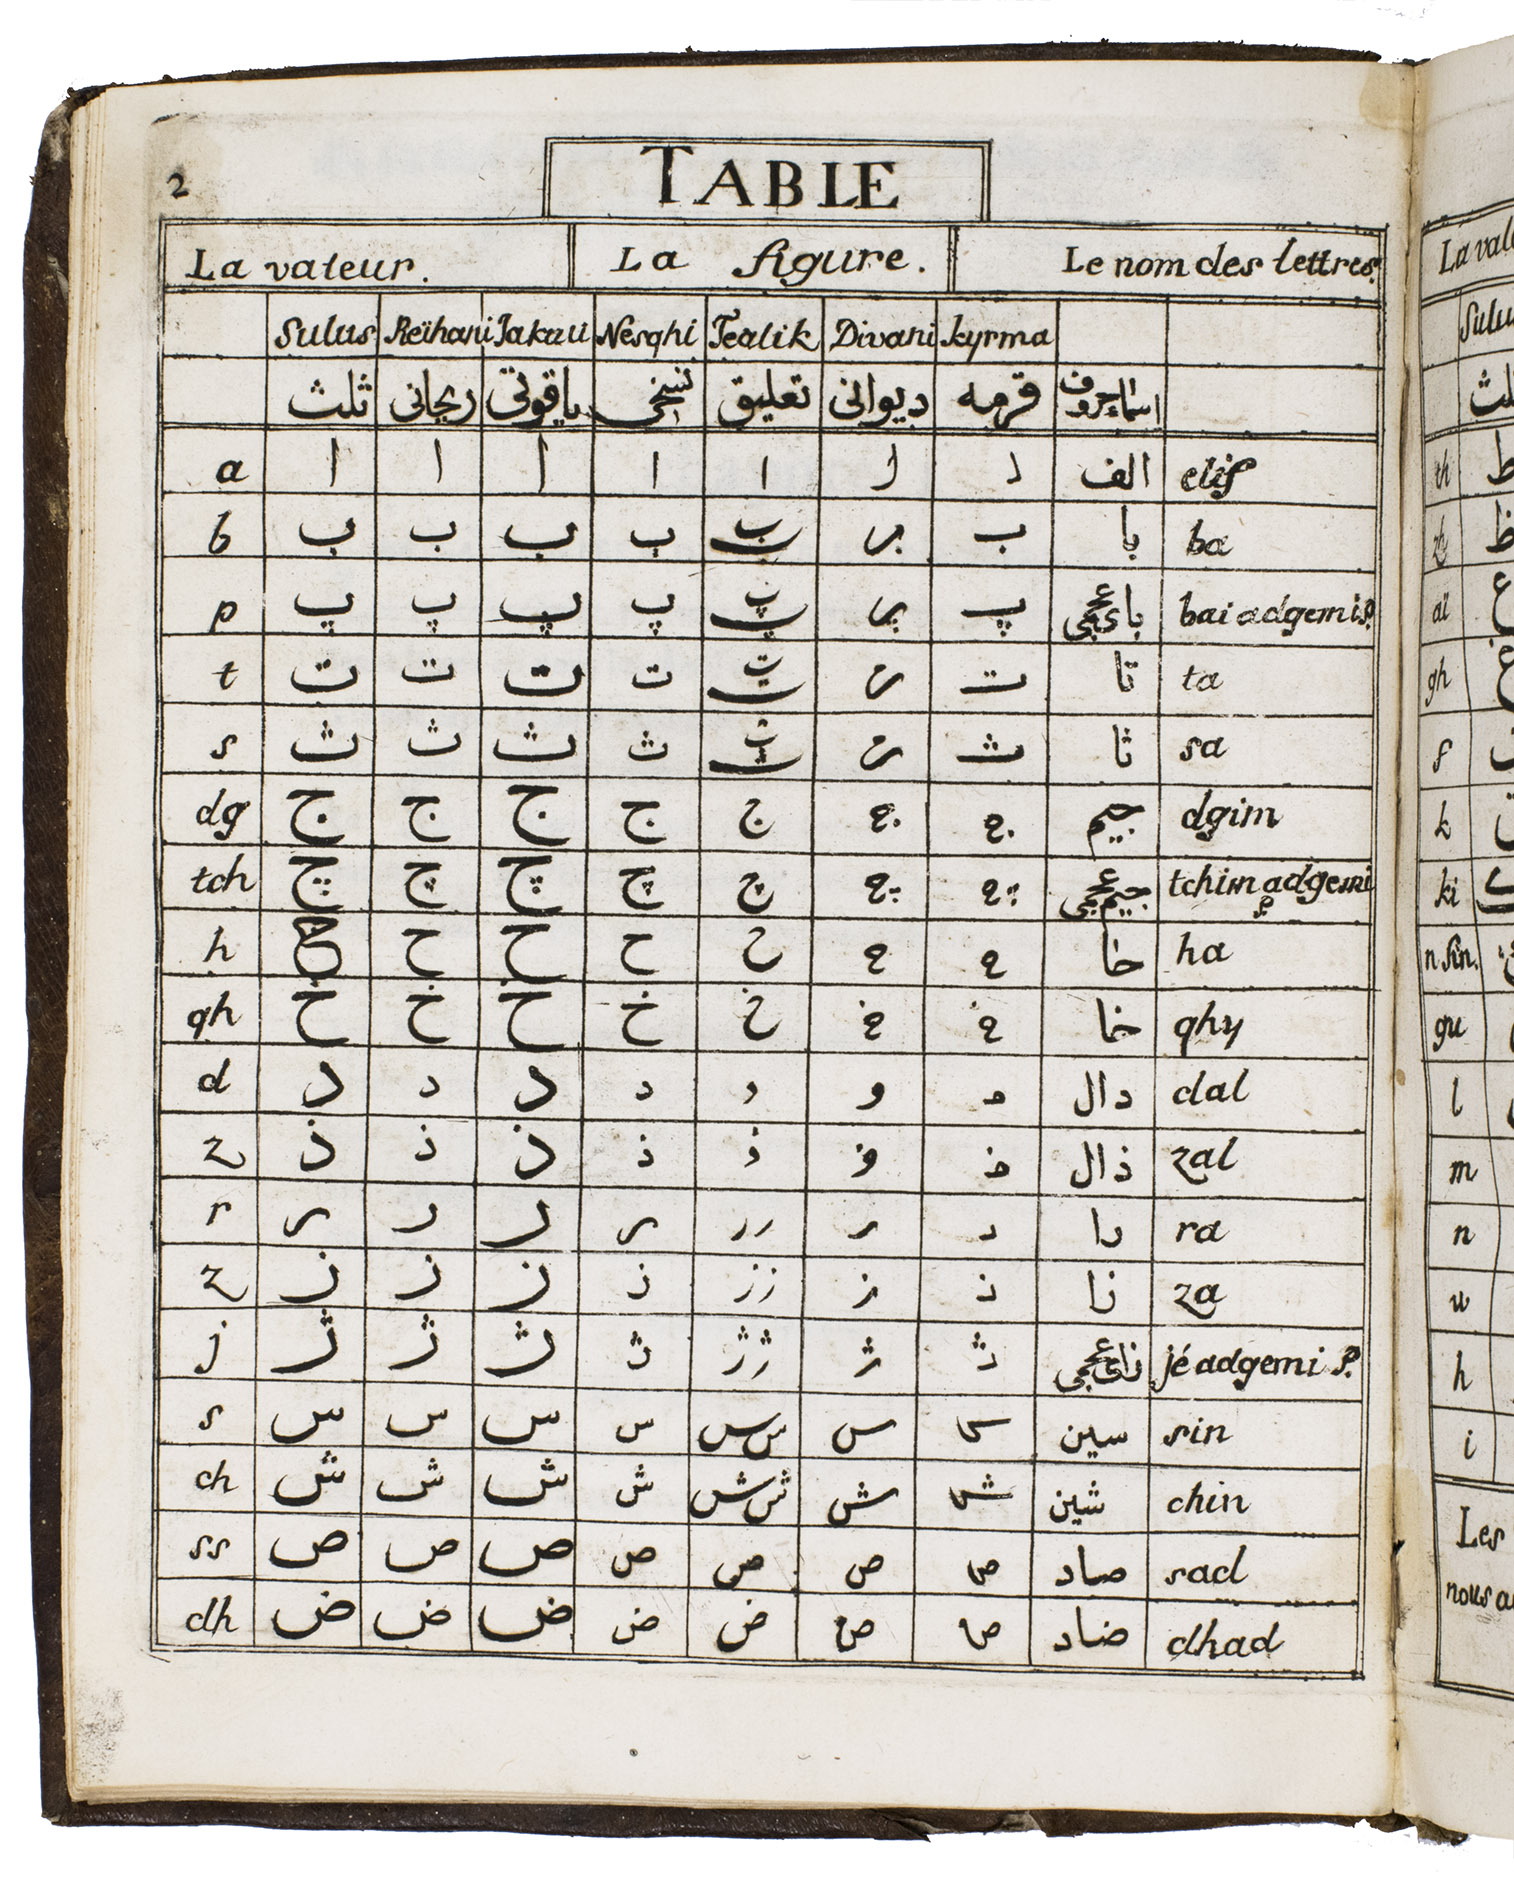 2
TABLE
La valeur. La figure. Le nom des lettres.
Sulus Reïhani Jakuti Nesqhi Tealik Divani kyrma
ثلث ریحانی یاقوتی نسخی تعلیق دیوانی قرمه اسماء حروف
a ا ا ا ا ا ا ا الف elif
b ب ب ب ب ب ب ب ب با ba
p پ پ پ پ پ پ پ پ بای عجمی bai adgemi p.
t ت ت ت ت ت ت ت ت تا ta
s ث ث ث ث ث ث ث ث ثا sa
dg ج ج ج ج ج ج ج جیم dgim
tch چ چ چ چ چ چ چ جیم عجمی tchim adgemi p
h ح ح ح ح ح ح ح خا ha
qh خ خ خ خ خ خ خ خا qhy
d د د د د د د د دال dal
z ذ ذ ذ ذ ذ ذ ذ ذال zal
r ر ر ر ر ر ر ر ر را ra
z ز ز ز ز ز ز ز ز زا za
j ژ ژ ژ ژ ژ ژ ژ ژ زای عجمی jé adgemi p.
s س س س س س س س س سین sin
ch ش ش ش ش ش ش ش ش شین chin
ss ص ص ص ص ص ص ص صاد sad
dh ض ض ض ض ض ض ض ضاد dhad
La
ثلث
th ط
ظ
aï ع
gh غ
f
k
ki
n
gu
l
m
n
u
h
i
Les
nous